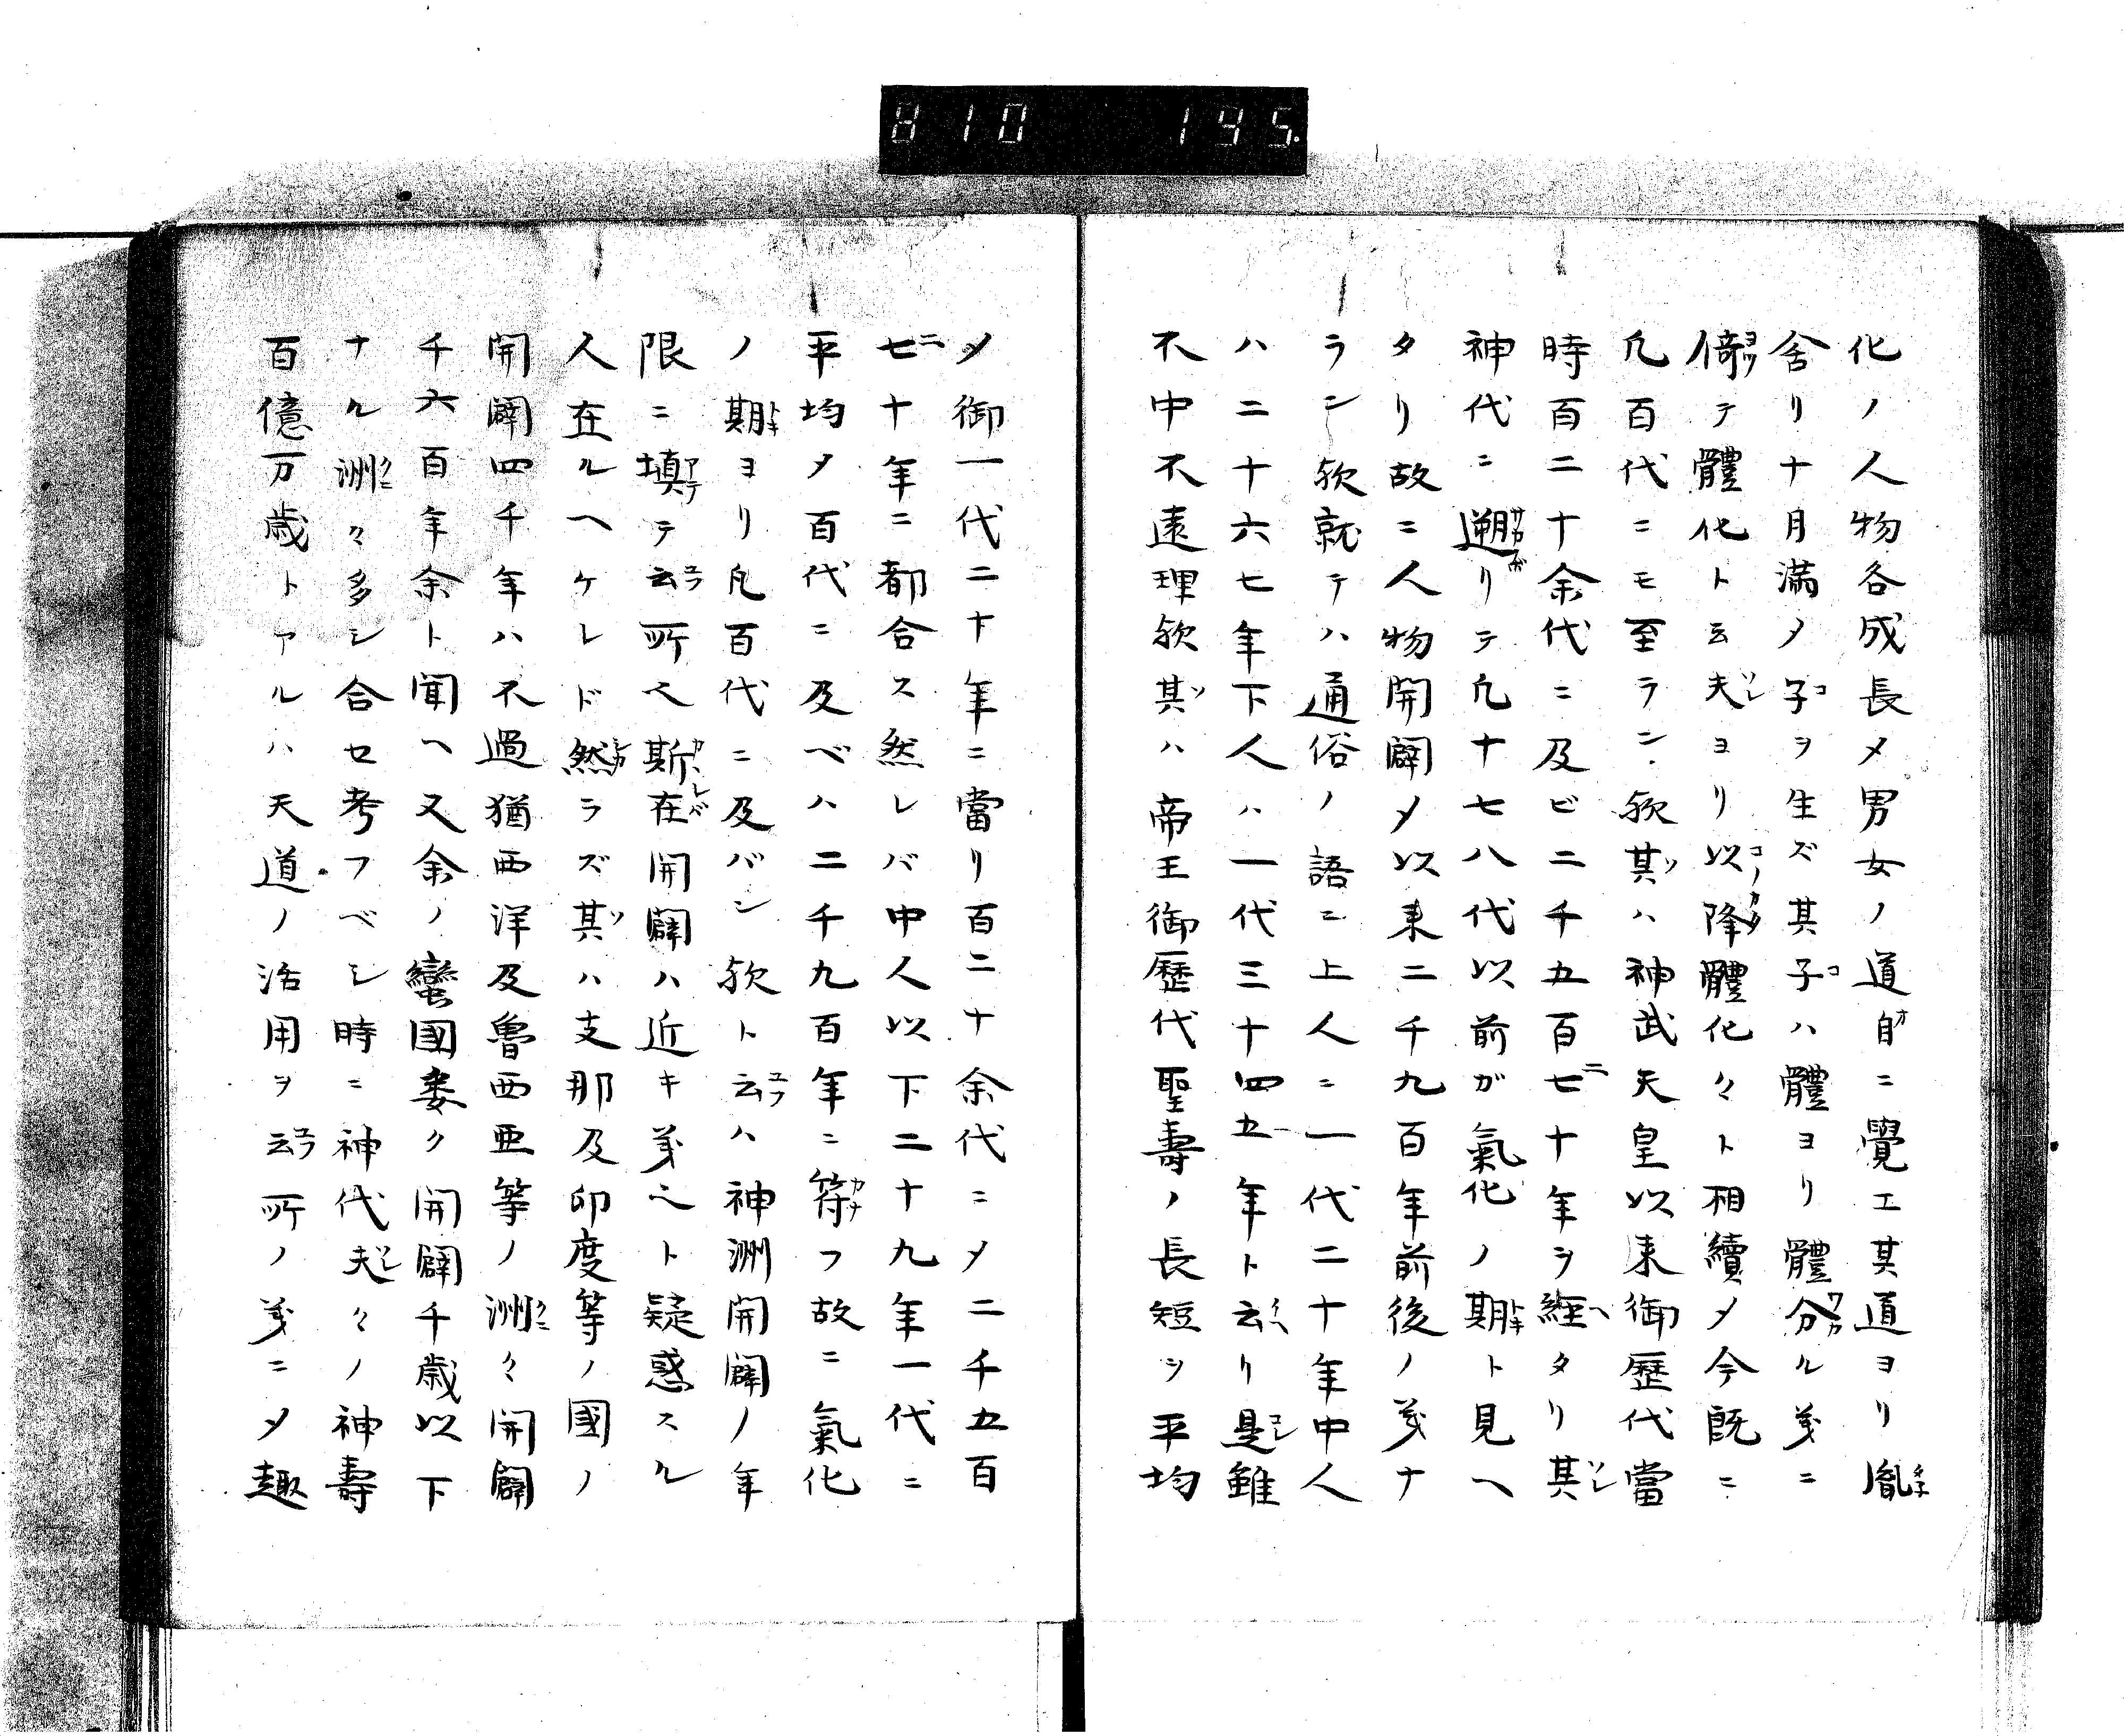 810 195.
化ノ人物各成長〆男女ノ道自ニ覺エ其道ヨリ胤
舍リ十月満〆子ヲ生ズ其子ハ體ヨリ體分ル㒵ニ
倚テ體化ト云夫ヨリ以降體化々々ト相續〆今既ニ
凢百代ニモ至ラン欤其ハ神武天皇以来御歴代當
時百二十余代ニ及ビ二千五百七十年ヲ經タリ其
神代ニ遡リテ凢十七八代以前ガ氣化ノ期ト見ヘ
タリ故ニ人物開闢〆以来二千九百年前後ノ㒵ナ
ラン欤就テハ通俗ノ語ニ上人ニ一代二十年中人
ハ二十六七年下人ハ一代三十四五年ト云リ是雖
不中不遠理欤其ハ帝王御歴代聖壽ノ長短ヲ平均
〆御一代二十年ニ當リ百二十余代ニ〆二千五百
七十年ニ都合ス然レバ中人以下二十九年一代ニ
平均〆百代ニ及ベハ二千九百年ニ符フ故ニ氣化
ノ期ヨリ凢百代ニ及バン欤ト云ハ神洲開闢ノ年
限ニ填テ云所也斯在開闢ハ近キ㒵也ト疑惑スル
人在ルヘケレド然ラズ其ハ支那及印度等ノ國ノ
開闢四千年ハ不過猶西洋及魯西亜等ノ洲々開闢
千六百年余ト聞ヘ又余ノ蠻國委ク開闢千歳以下
ナル洲々多シ合セ考フベシ時ニ神代夫々ノ神壽
百億万歳トアルハ天道ノ活用ヲ云所ノ㒵ニ〆趣